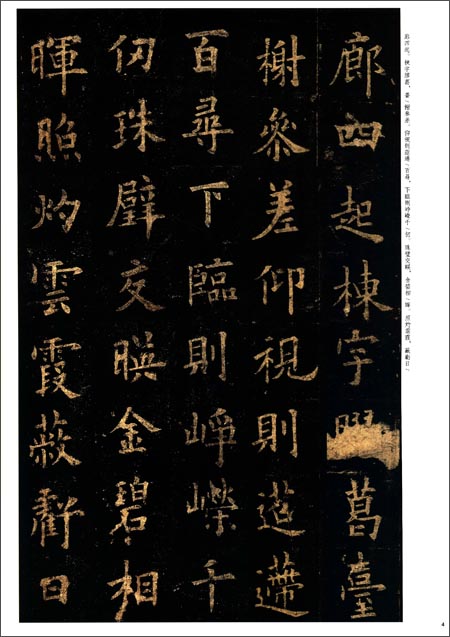 廊四起，棟宇膠葛，臺／榭參差。仰視則迢遰／百尋，下臨則崢嶸千／仞。珠璧交暎，金碧相／暉，照灼雲霞，蔽虧日／
廊四起棟宇膠葛臺
榭參差仰視則迢遰
百尋下臨則崢嶸千
仞珠璧交暎金碧相
暉照灼雲霞蔽虧日
4